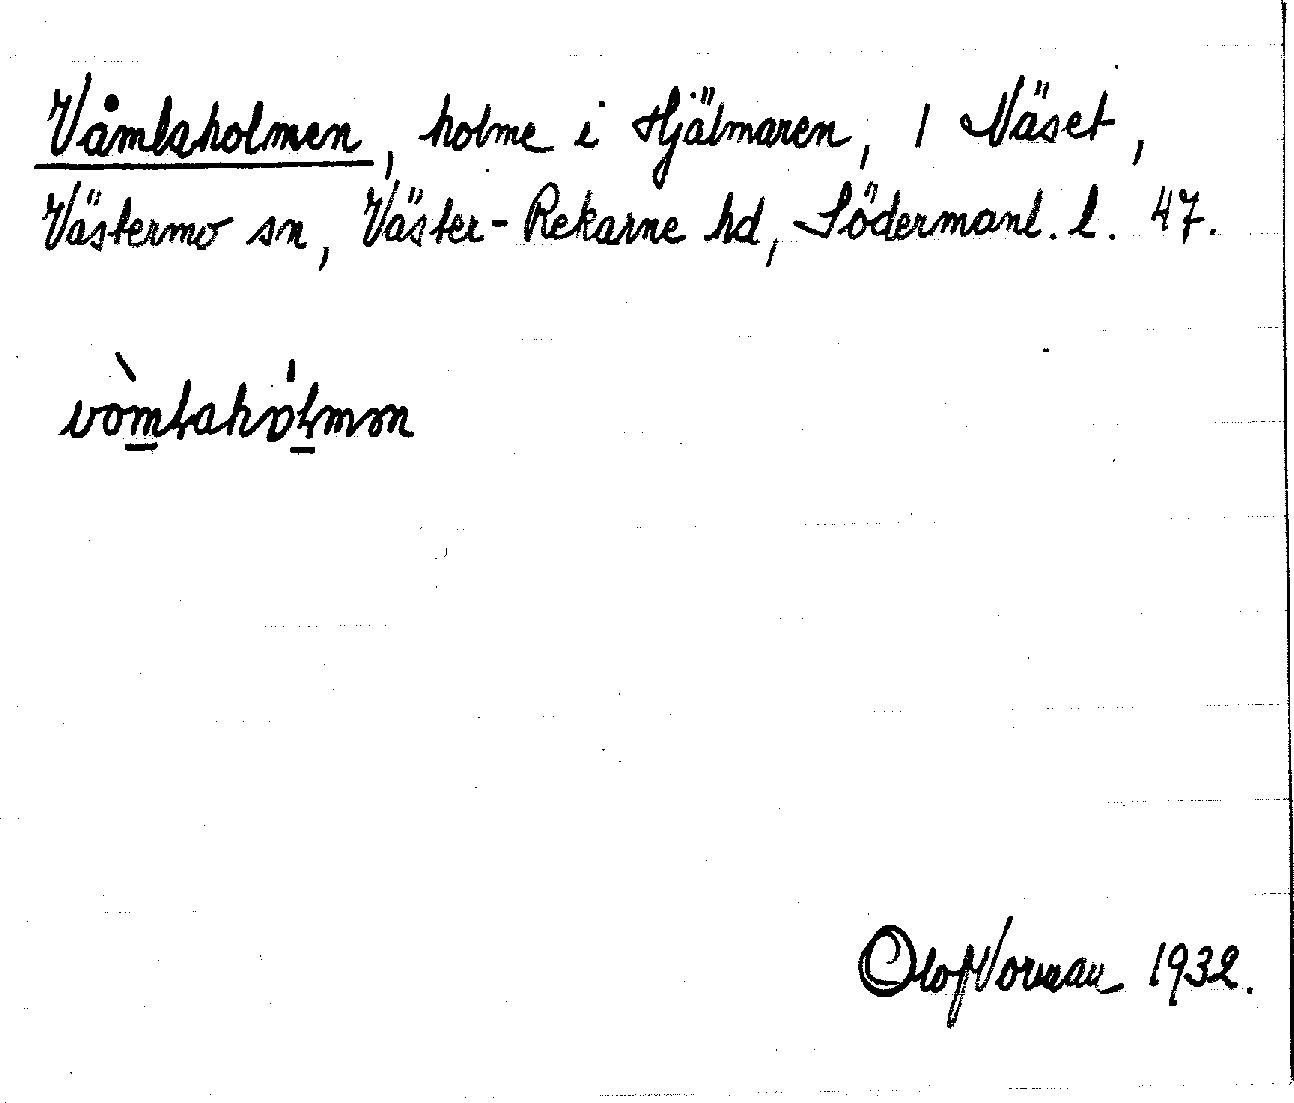 Våmlaholmen, holme i Hjälmaren, 1 Näset,
Västermo sn, Väster-Rekarne hd, Södermanl. l. 47.
vòmlahólmən
Olof Norman 1932.